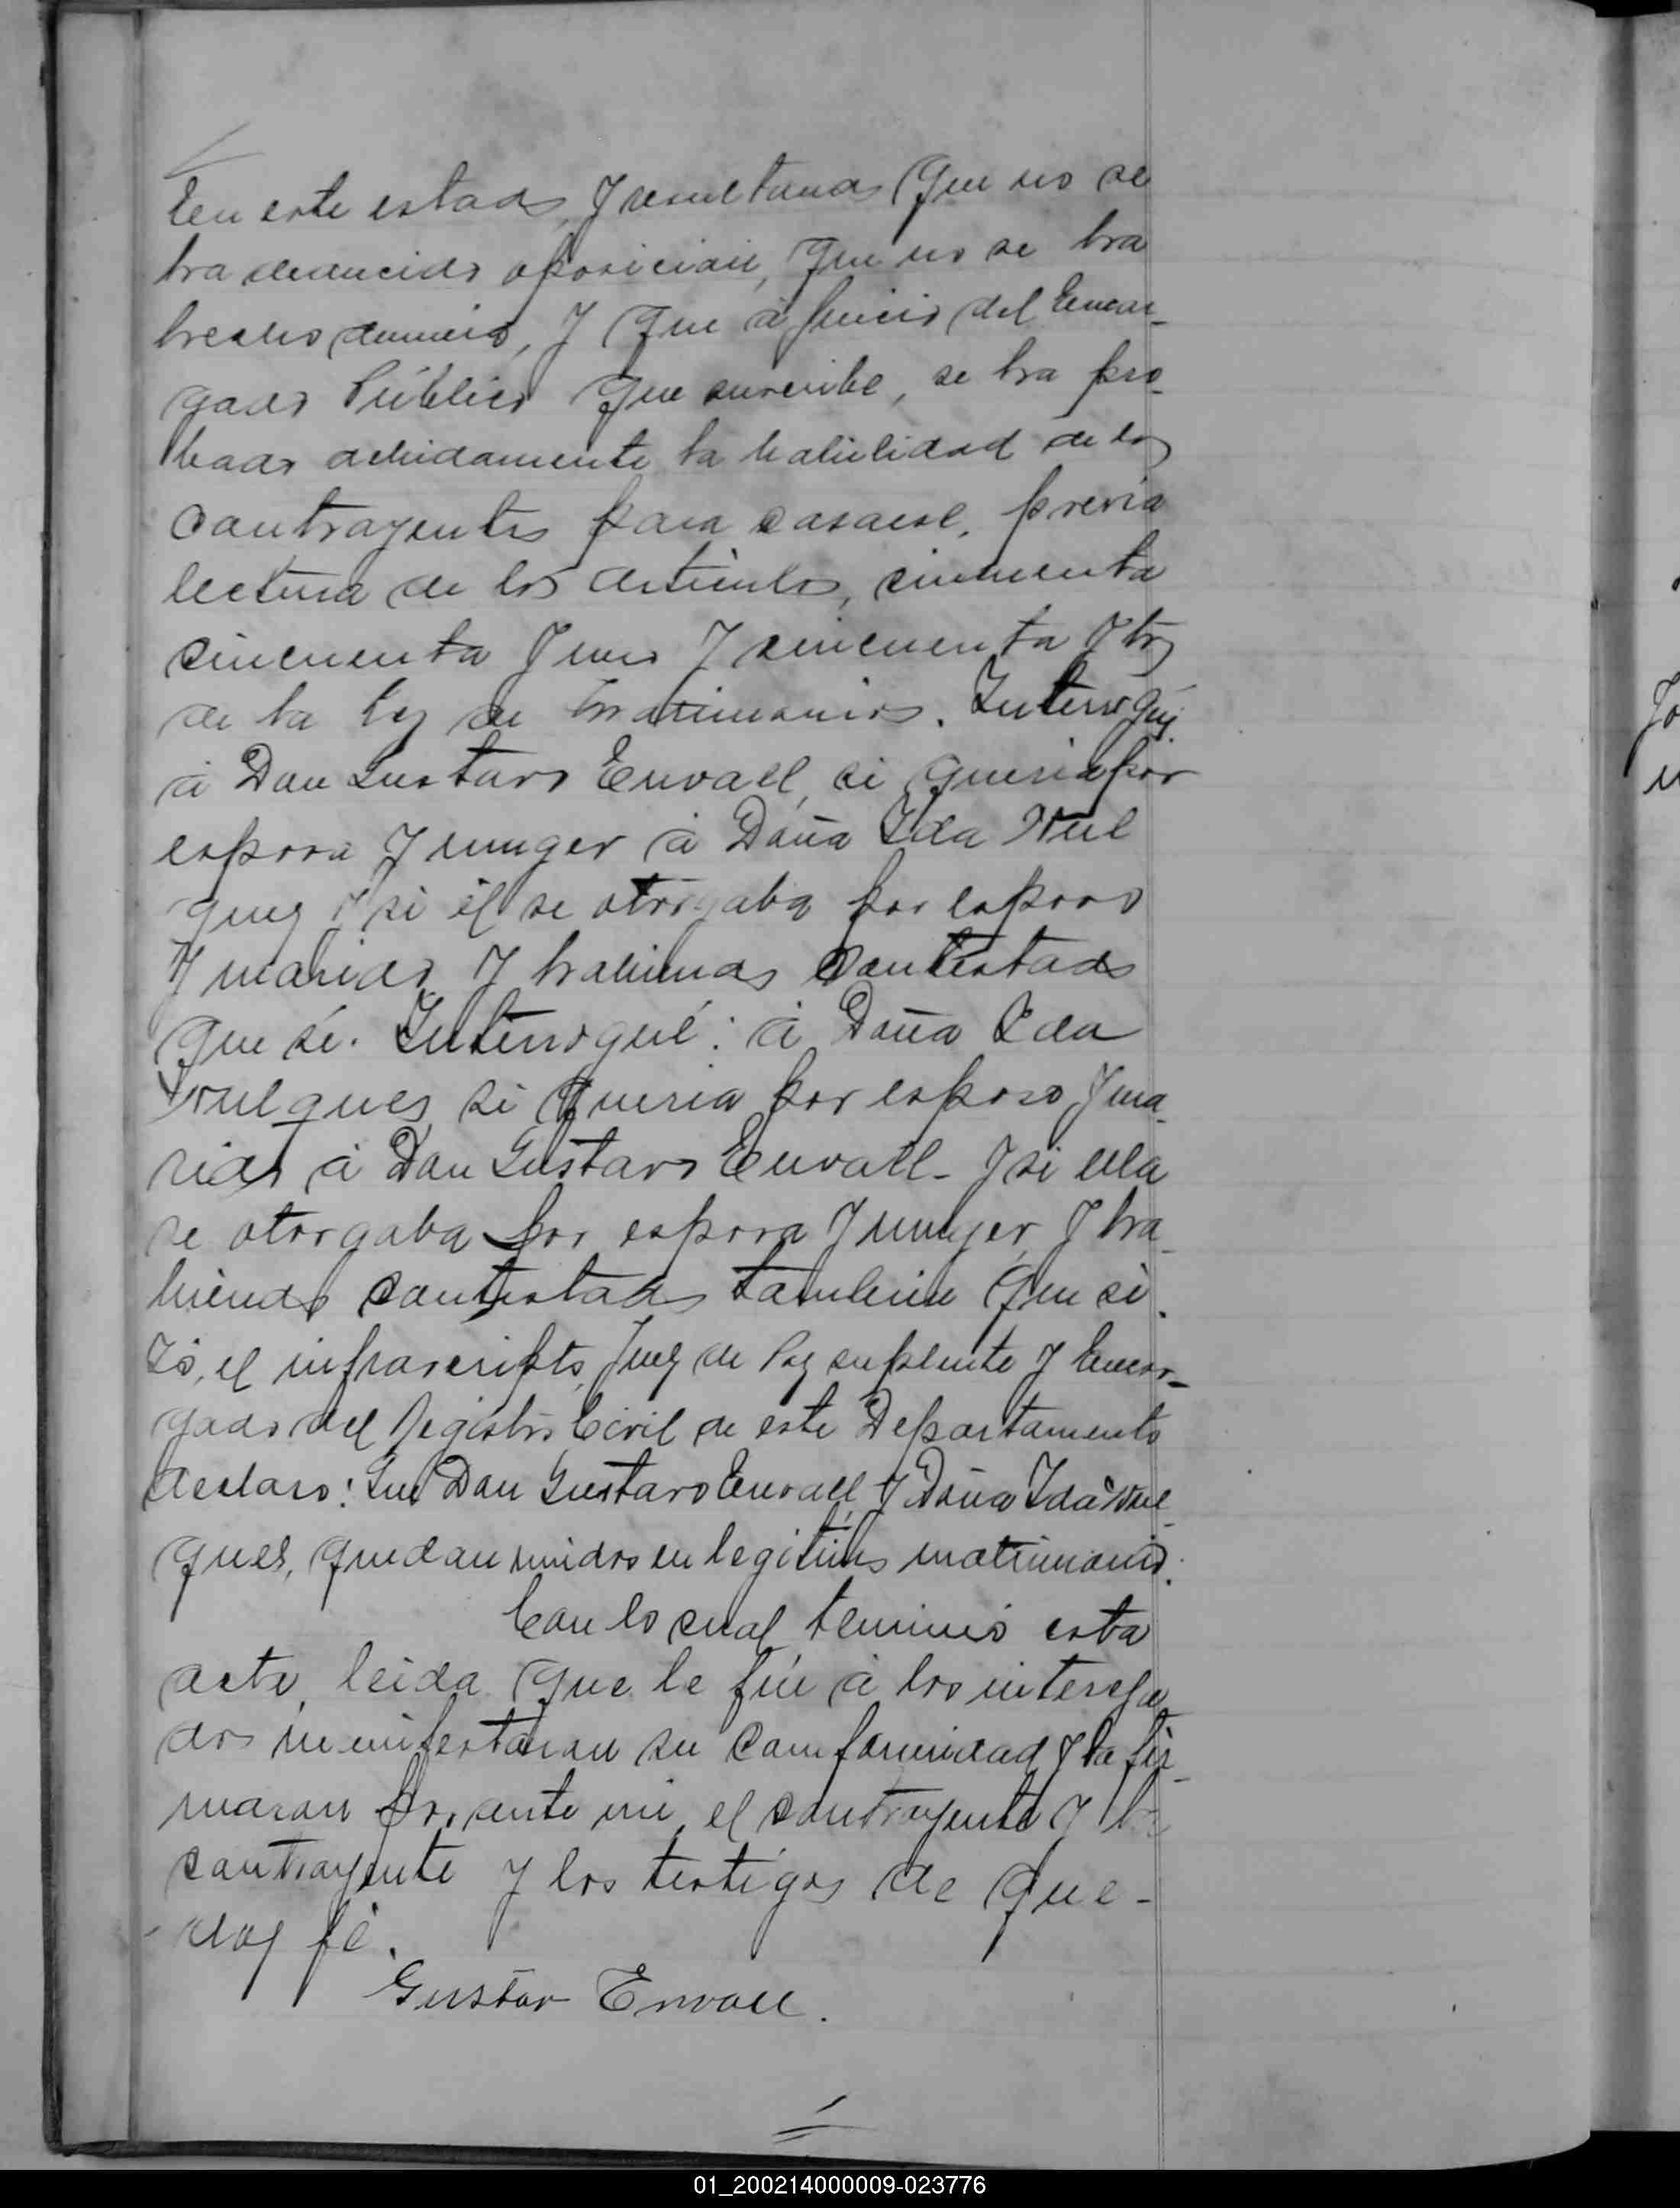 En este estado, y resultando que no se
ha deducido oposicion, que no se ha
hecho denuncia, y que à juicio del Encar-
gado Público que suscribe, se ha pro-
bado debidamente la habilidad de los
contrayentes para casarse, previa
lectura de los articulos, cincuenta
cincuenta y uno y cincuenta y tres
de la ley de matrimonios. Interrogué
à Don Gustavo Envall, si queria por
esposa y muger à Doña Ida
ques y si él se otorgaba por esposo
y marido y habiendo contestado
que sí. Interrogué: à Doña Ida
si queria por esposo y ma-
rido à Don Gustavo Envall- y si ella
se otorgaba por esposa y mujer, y ha-
biendo contestado tambien que si.
Yó, el infrascripto, Juez de Paz suplente y Encar-
gado del Registro Civil de este Departamento
declaro: Que Don Gustavo Envall, y Doña Ida
ques, quedan unidos en legitimo matrimonio.
Con lo cual terminó esta
acta, leida que le fué à los interesa-
dos manifestaron su comformidad y la fir-
maron por ante mi, el contrayente y la
contrayente y los testigos de que-
doy fé.
Gustav Envall.
01_200214000009-023776